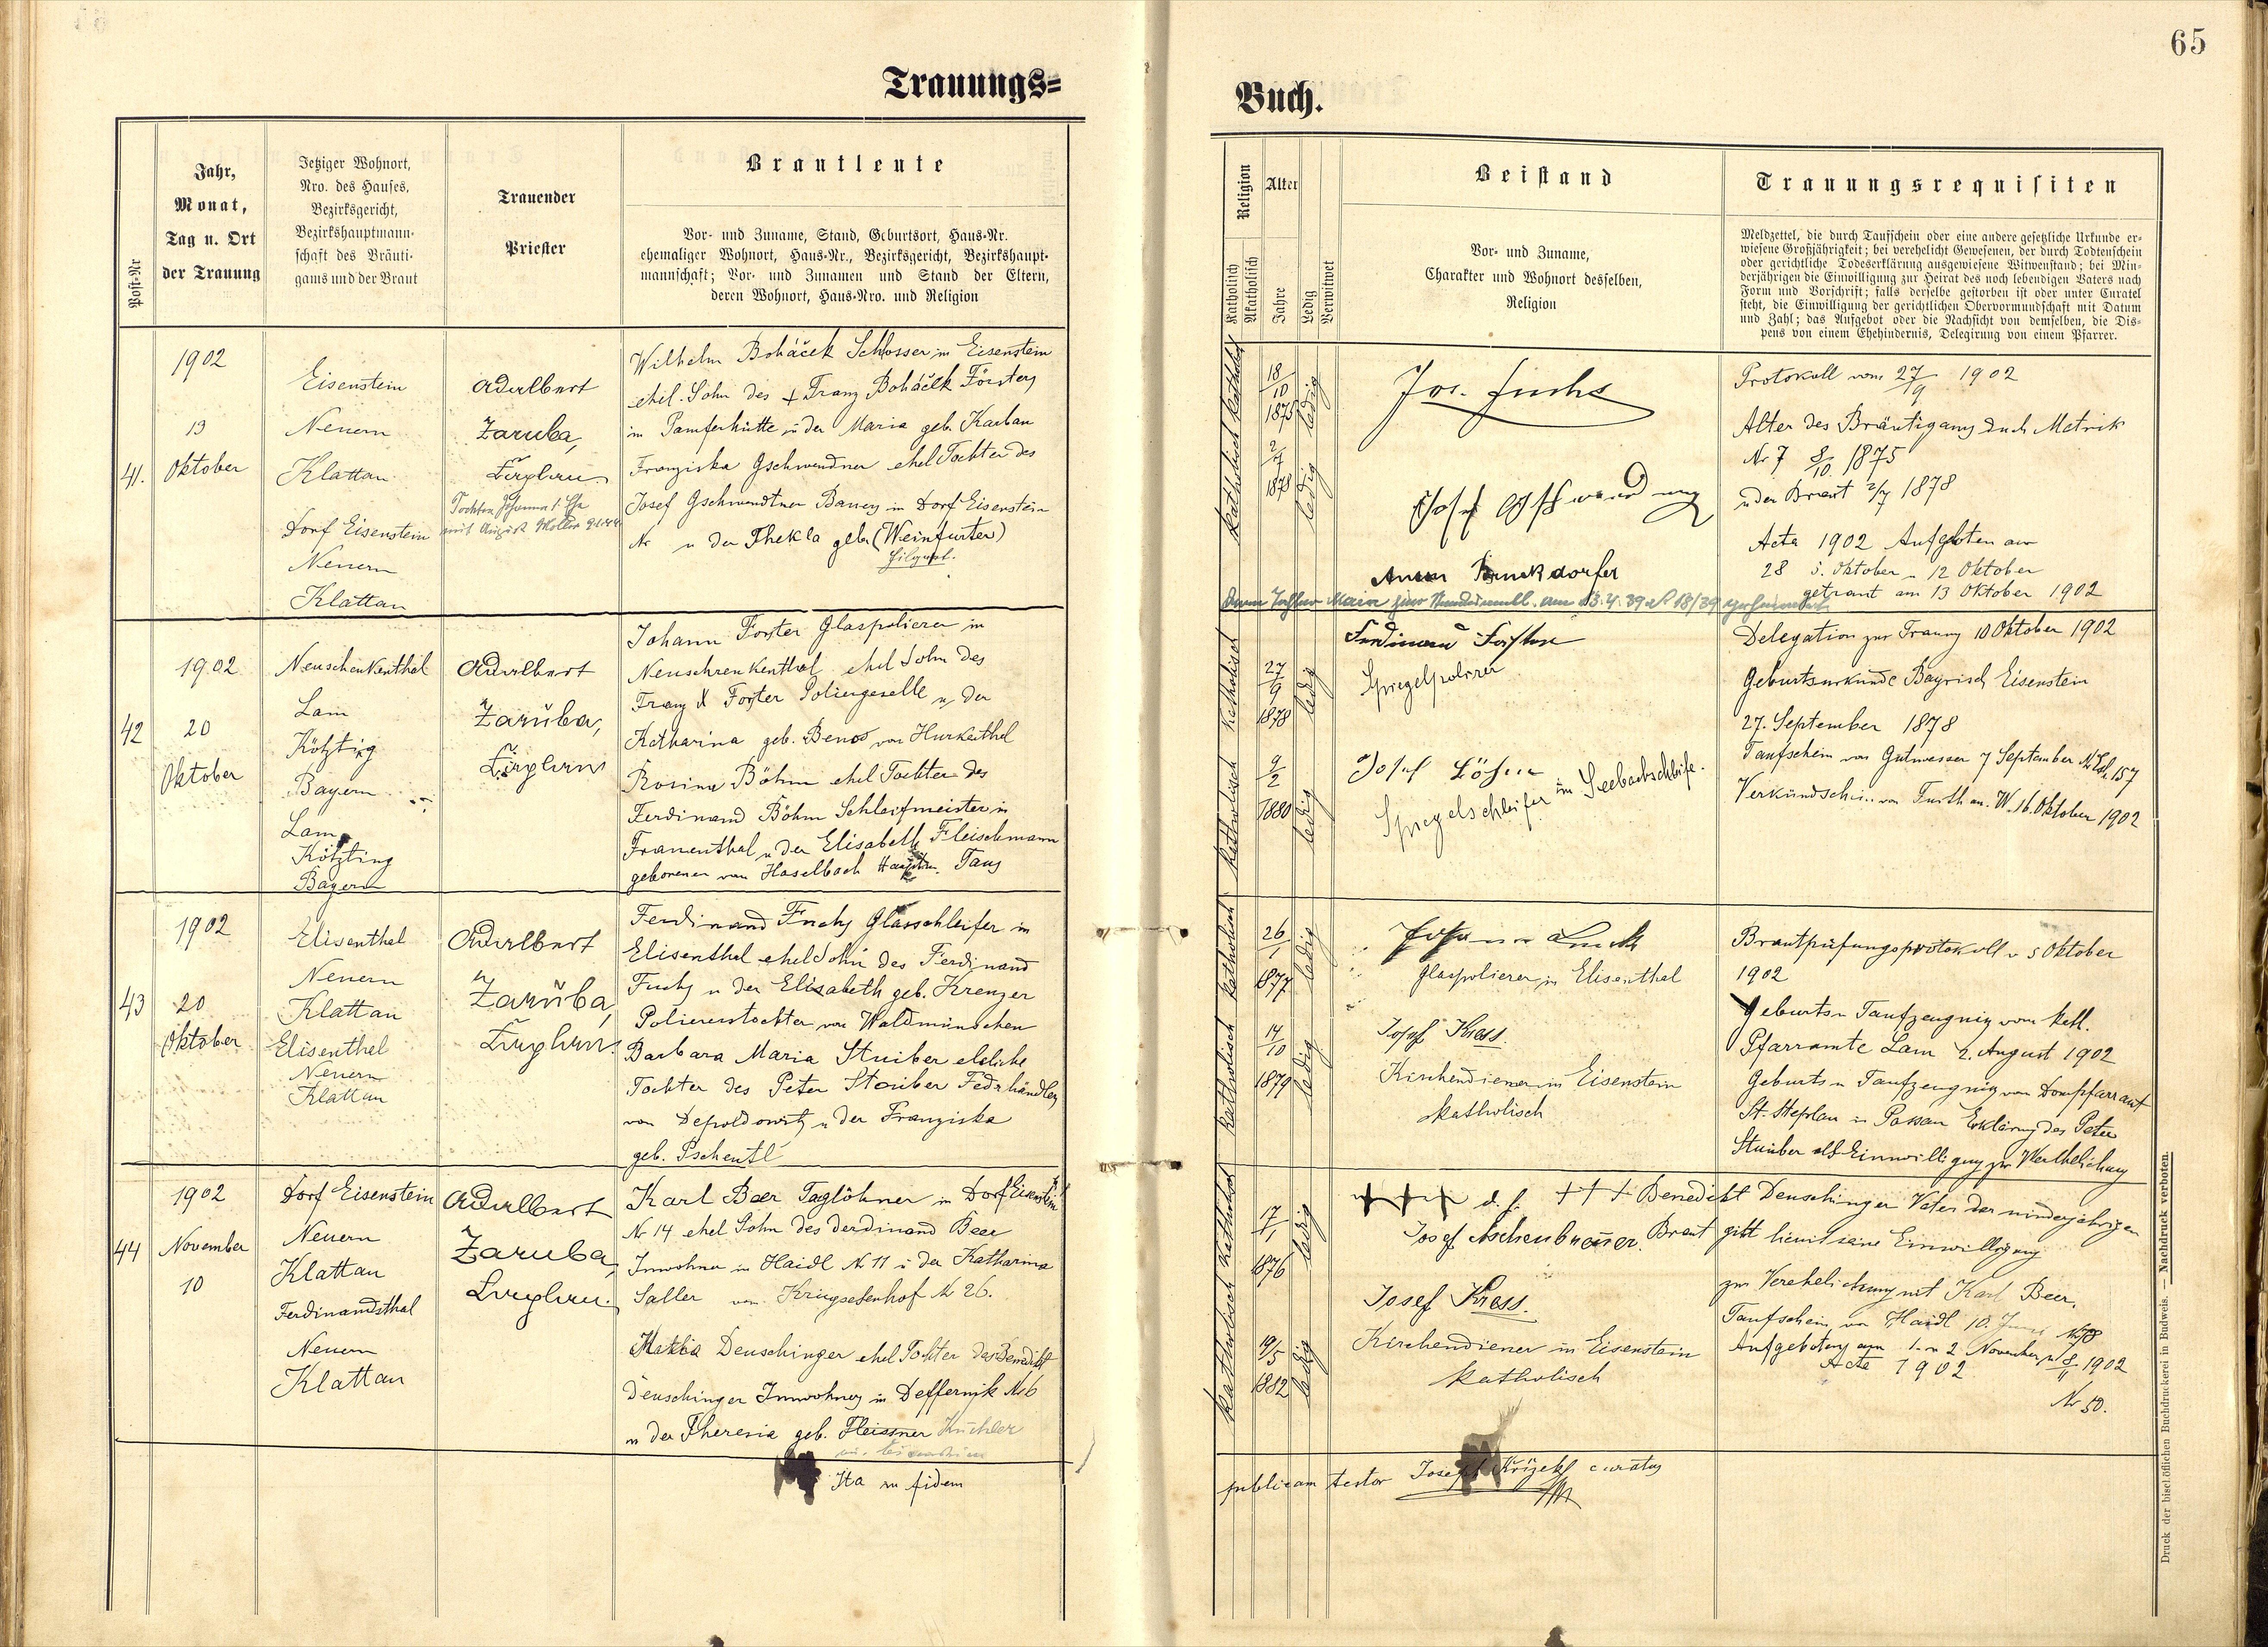 65
Trauungs=
Buch.
Post-Nr
Jahr,
Monat,
Tag u. Ort
der Trauung
Jetziger Wohnort,
Nro. des Hauses,
Bezirksgericht,
Bezirkshauptmann-
schaft des Bräuti-
gams und der Braut
Trauender
Priester
Brautleute
Vor- und Zuname, Stand, Geburtsort, Haus-Nr.
ehemaliger Wohnort, Haus-Nr., Bezirksgericht, Bezirkshaupt-
mannschaft; Vor- und Zunamen und Stand der Eltern,
deren Wohnort, Haus-Nro. und Religion
Religion
Katholisch
Akatholisch
Alter
Jahre
Ledig
Verwitwet
Beistand
Vor- und Zuname,
Charakter und Wohnort desselben,
Religion
Trauungsrequisiten
Meldzettel, die durch Taufschein oder eine andere gesetzliche Urkunde er-
wiesene Großjährigkeit; bei verehelicht Gewesenen, der durch Todtenschein
oder gerichtliche Todeserklärung ausgewiesene Witwenstand; bei Min-
derjährigen die Einwilligung zur Heirat des noch lebendigen Vaters nach
Form und Vorschrift; falls derselbe gestorben ist oder unter Curatel
steht, die Einwilligung der gerichtlichen Obervormundschaft mit Datum
und Zahl; das Aufgebot oder die Nachsicht von demselben, die Dis-
pens von einem Ehehindernis, Delegirung von einem Pfarrer.
41.
1902
13
Oktober
Eisenstein
Neuern
Klattau
Dorf Eisenstein
Neuern
Klattau
Adalbert
Zaruba,
Wilhelm Boháček Schlosser in Eisenstein
ehel. Sohn des + Franz Boháček Försters
in Pamferhütte u der Maria geb. Karban
Franziska Gschwendner ehel Tochter des
Josef Gschwendtner Bauers in Dorf Eisenstein
Nr u der Thekla geb (Weinfurter)
katholisch katholisch
18/10
1875
ledig
2/7
1878
ledig
Jos. Fuchs
Protokoll vom 27/9 1902
Alter des Bräutigams durch Matrik
Nr 7 8/10 1875
u der Braut 2/7 1878
Acta 1902 Aufgeboten am
28 5. Oktober u 12 Oktober
getraut am 13 Oktober 1902
42
1902
20
Oktober
Lam
Kötzting
Bayern
Lam
Kötzting
Bayern
Adalbert
Zaruba,
Johann Forster Glaspolierer in
Neuschrenkenthal ehel Sohn des
Franz X Forster Poliergeselle u der
Katharina geb. Benes von Hurkenthal
Rosina Böhm ehel Tochter des
Ferdinand Böhm Schleifmeister in
Frauenthal u der Elisabeth Fleischmann
geborenen von Haselbach Taus
katholisch
27/9
1878
ledig
katholisch
9/2
1880
ledig
Ferdinand Forster
Spiegelpolirer
Josef Böhm
Spiegelschleifer in Seebachschleife.
Delegation zur Trauung 10 Oktober 1902
Geburtsurkunde Bayrisch Eisenstein
27. September 1878
Taufschein von Gutwasser 7 September 157
Verkündschein von Furth am. W. 16. Oktober 1902
43
1902
20
Oktober
Elisenthal
Neuern
Klattau
Elisenthal
Neuern
Klattau
Adalbert
Zaruba,
Ferdinand Fuchs Glasschleifer in
Elisenthal ehel Sohn des Ferdinand
Fuchs u der Elisabeth geb. Krenzer
Poliererstochter von Waldmünchen
Barbara Maria Stuiber eheliche
Tochter des Peter Stuiber Federhändlers
von Depoldowitz u der Franziska
geb. Pscheutl
katholisch
26/1
1877
ledig
katholisch
14/10
1879
ledig
Glaspolierer in Elisenthal
Josef Kress.
Kirchendiener in Eisenstein
katholisch
Brautprüfungsprotokoll v 5 Oktober
1902
Geburts u Taufzeugnis vom kath.
Pfarramte Lam 2. August 1902
Geburts u Taufzeugnis vom Dompfarramt
St. Stephan in Passau Erklärung des Peter
Stuiber als Einwilligung zur Verehelichung
44
1902
November
10
Dorf Eisenstein
Neuern
Klattau
Ferdinandsthal
Neuern
Klattau
Adalbert
Zaruba,
Karl Beer Taglöhner in Dorf Eisenstein
Nr 14 ehel Sohn des Ferdinand Beer
Inwohner in Haidl N 11 u der Katharina
Saller von Kriegseisenhof N 26.
Deuschinger ehel Tochter des Benedikt
Deuschinger Inwohners in Deffernik N 6
u der Theresia geb. Fleissner
katholisch
17/1
1876
ledig
katholisch
19/5
1882
ledig
+++ d. h. +++ Benedikt Deuschinger Vater der minderjährigen
Josef Aschenbrenner. Braut gibt hiemit seine Einwilligung
zur Verehelichung mit Karl Beer.
Josef Kress.
Kirchendiener in Eisenstein
katholisch
Taufschein von Haidl 10.
Aufgeboten am 1. u 2 November u 8/11 1902
Acta 1902
Nr 50.
Ita in fidem
publicam testor Joseph Křížek curatus
Druck der bischöflichen Buchdruckerei in Budweis. — Nachdruck verboten.